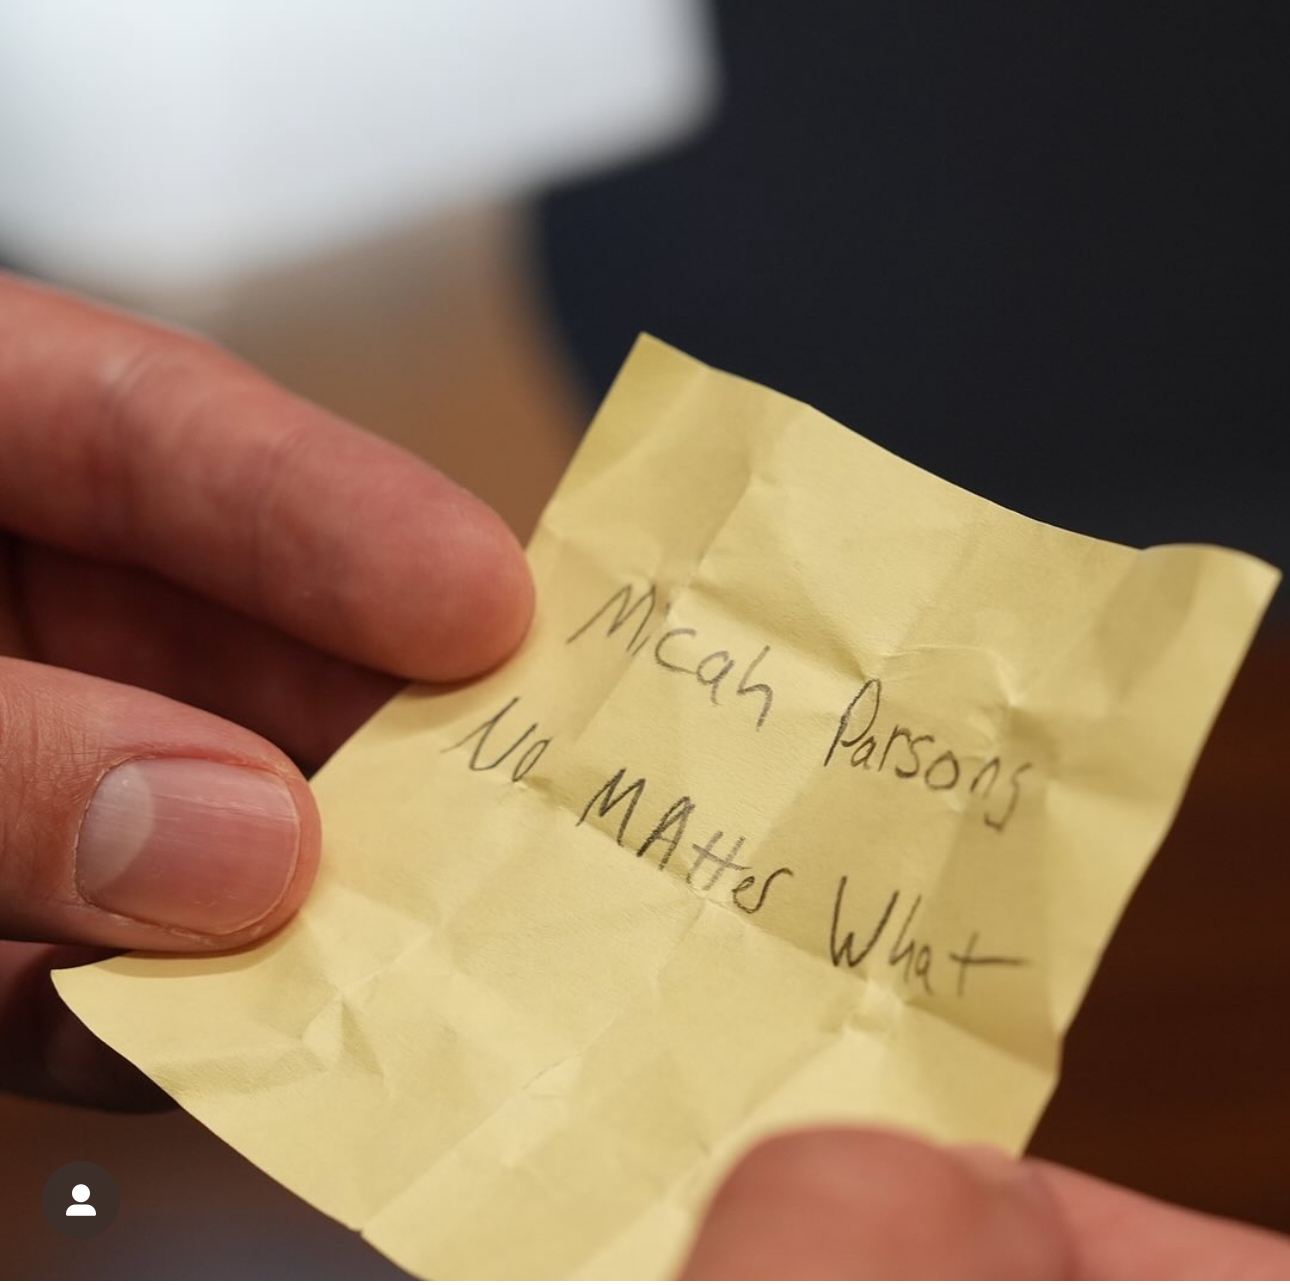 Micah Parsons
No MAtter What